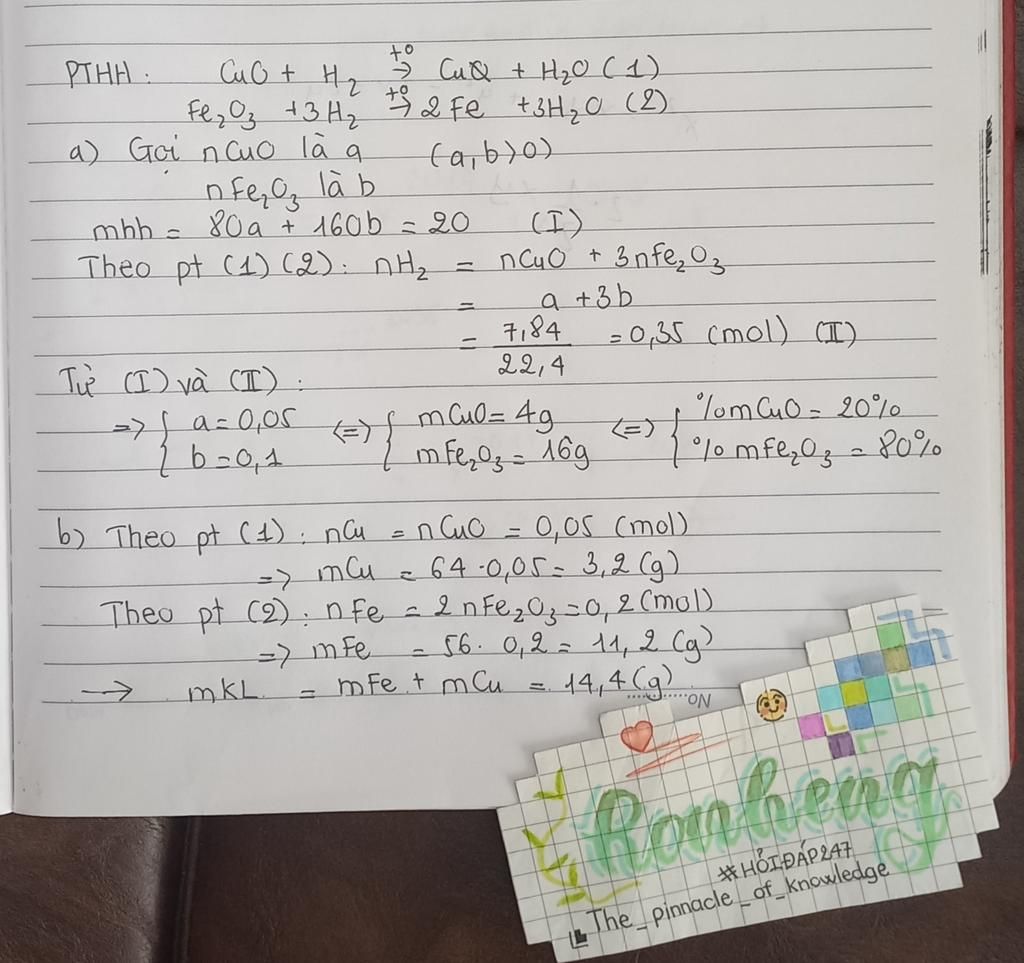 PTHH: CuO + H₂ →(t°) Cu + H₂O (1)
Fe₂O₃ + 3H₂ →(t°) 2Fe + 3H₂O (2)
a) Gọi nCuO là a (a,b>0)
nFe₂O₃ là b
mhh = 80a + 160b = 20 (I)
Theo pt (1)(2): nH₂ = nCuO + 3nFe₂O₃
= a + 3b
= 7,84/22,4 = 0,35 (mol) (II)
Từ (I) và (II):
=> { a = 0,05 <=> { mCuO = 4g <=> { %mCuO = 20%
{ b = 0,1 { mFe₂O₃ = 16g { %mFe₂O₃ = 80%
b) Theo pt (1): nCu = nCuO = 0,05 (mol)
=> mCu = 64.0,05 = 3,2 (g)
Theo pt (2): nFe = 2nFe₂O₃ = 0,2 (mol)
=> mFe = 56. 0,2 = 11,2 (g)
→ mKL = mFe + mCu = 14,4 (g)
No
Romheng
#HỎIĐÁP247
The_pinnacle_of_knowledge